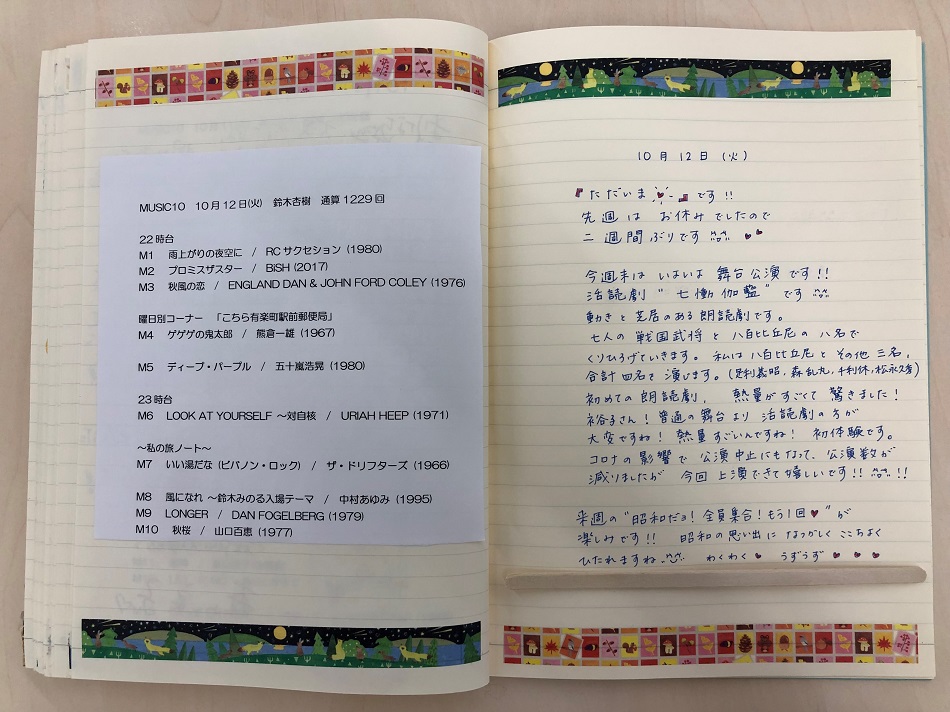 MUSIC10 10月12日(火) 鈴木杏樹 通算1229回
22時台
M1 雨上がりの夜空に / RCサクセション (1980)
M2 プロミスザスター / BiSH (2017)
M3 秋風の恋 / ENGLAND DAN & JOHN FORD COLEY (1976)
曜日別コーナー 「こちら有楽町駅前郵便局」
M4 ゲゲゲの鬼太郎 / 熊倉一雄 (1967)
M5 ディープ・パープル / 五十嵐浩晃 (1980)
23時台
M6 LOOK AT YOURSELF ～対自核 / URIAH HEEP (1971)
～私の旅ノート～
M7 いい湯だな (ビバノン・ロック) / ザ・ドリフターズ (1966)
M8 風になれ ～鈴木みのる入場テーマ / 中村あゆみ (1995)
M9 LONGER / DAN FOGELBERG (1979)
M10 秋桜 / 山口百恵 (1977)
10月12日 (火)
『ただいま♡』です!!
先週は お休みでしたので
二週間ぶりです
今週末は いよいよ 舞台公演です!!
活読劇"七慟伽藍"です
動きと芝居のある朗読劇です。
七人の戦国武将と 八百比丘尼の八名で
くりひろげていきます。私は八百比丘尼と その他三名、
合計四名で演じます。(足利義昭、森乱丸、千利休、松永久秀)
初めての朗読劇、 熱量がすごくて 驚きました!
裕子さん! 普通の舞台より 活読劇の方が
大変ですね! 熱量すごいんですね! 初体験です。
コロナの影響で 公演中止にもなって、公演数が
減りましたが 今回 上演できて嬉しいです!! !!
来週の"昭和だョ!全員集合!もう1回♥"が
楽しみです!! 昭和の思い出に なつかしく ここちよく
ひたれますね わくわく♥ うずうず♥ ♥ ♥